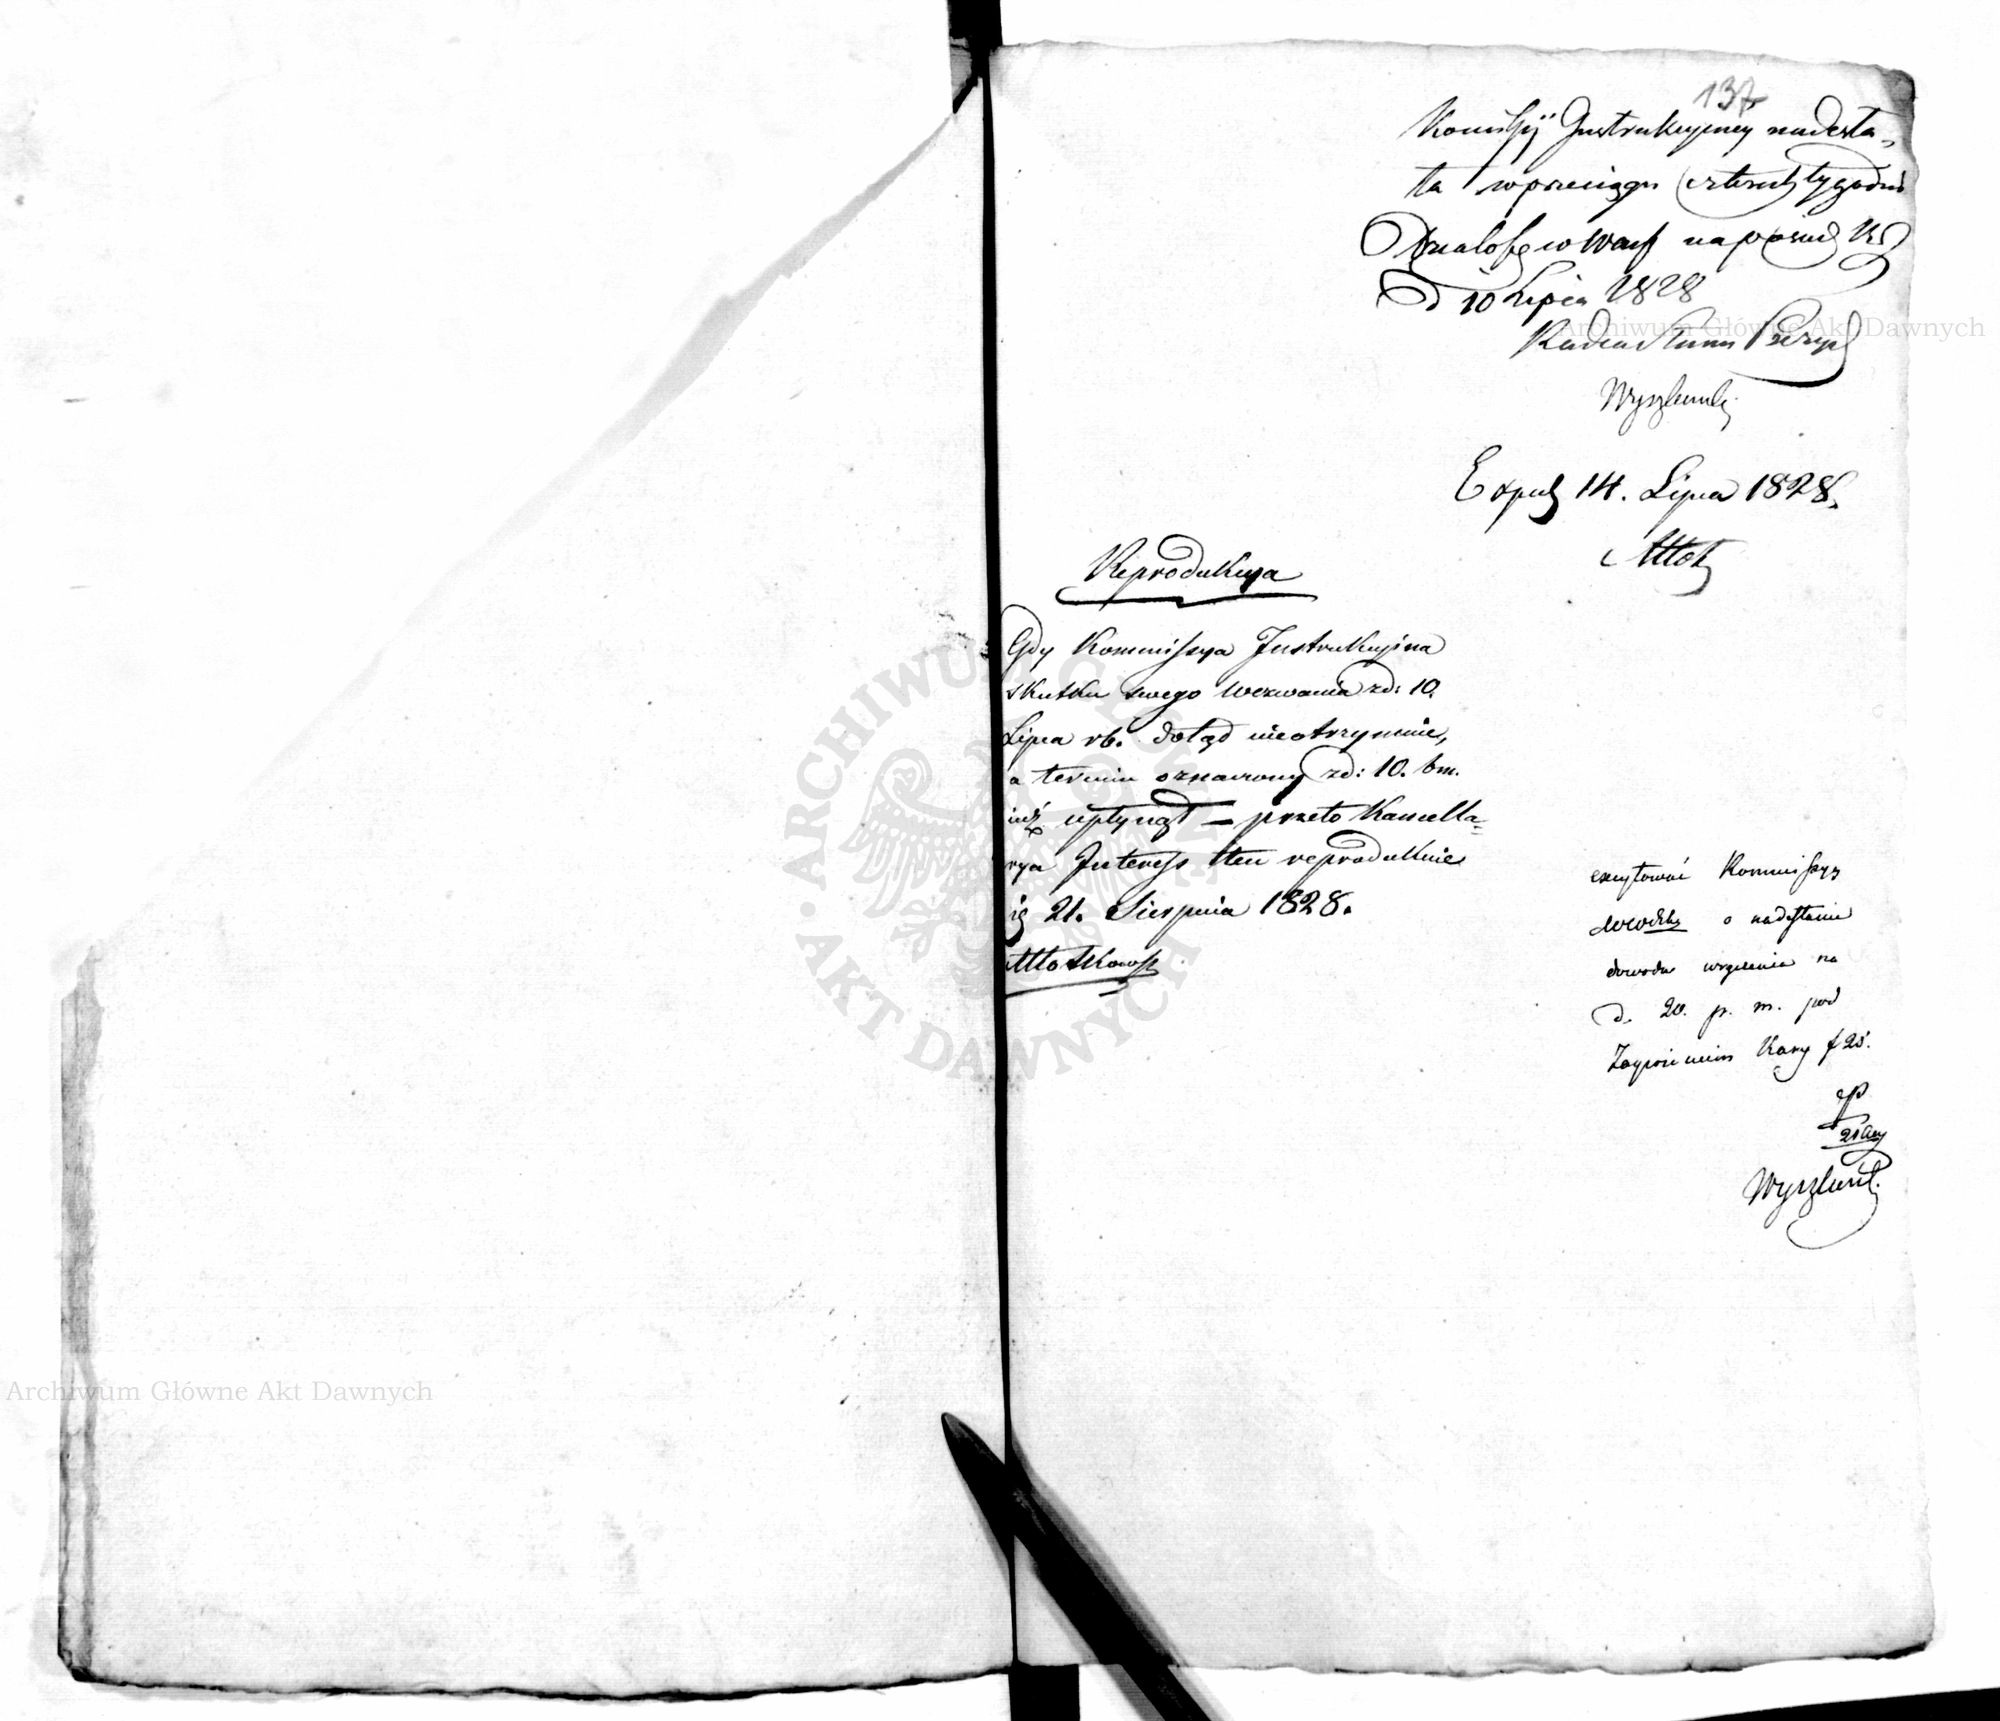 137
Komissyi Instrukcyiney nadesła-
ła w przeciągu czterech tygodni
Działo się w Warsz na posied
d 10 Lipca 1828
Radca Stanu Prezyd
Exped 14. Lipca 1828.
Reprodukcya
Gdy Kommissya Instrukcyina
skutku swego wezwania z d: 10.
Lipca rb. dotąd nieotrzymuie,
a termin oznaczony z d: 10. bm.
iuż upłynął — przeto Kancella-
rya Interess ten reprodukuie
ię 21. Sierpnia 1828.
excytować Kommissyą
o nadesłanie
dowodu wręczenia na
d. 20. p. m. pod
Zagrożeniem Kary f 20.
Archiwum Główne Akt Dawnych
Archiwum Główne Akt Dawnych
• ARCHIWUM GŁÓWNE • AKT DAWNYCH